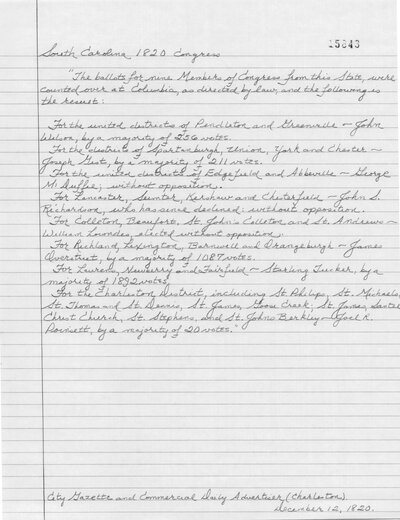 15843
South Carolina 1820 Congress
"The ballots for nine Members of Congress from this State, were
counted over at Columbia, as directed by law, and the following is
the result:
For the united districts of Pendleton and Greenville ~ John
Wilson, by a majority of 256 votes.
For the districts of Spartanburgh, Union, York and Chester ~
Joseph Gist, by a majority of 211 votes.
For the united districts of Edgefield and Abbeville ~ George
McDuffie; without opposition.
For Lancaster, Sumter, Kershaw and Chesterfield ~ John S.
Richardson, who has since declined; without opposition.
For Colleton, Beaufort, St. John's Colleton, and St. Andrews ~
William Lowndes, elected without opposition.
For Richland, Lexington, Barnwell and Orangeburgh ~ James
Overstreet, by a majority of 1087 votes.
For Laurens, Newberry and Fairfield ~ Starling Tucker, by a
majority of 1892 votes.
For the Charleston District, including St. Philips, St. Michaels,
St. Thomas and St. Dennis, St. James, Goose Creek; St. James, Santee
Christ Church, St. Stephens, and St. Johns Berkley ~ Joel R.
Poinsett, by a majority of 20 votes."
City Gazette and Commercial Daily Advertiser (Charleston).
December 12, 1820.